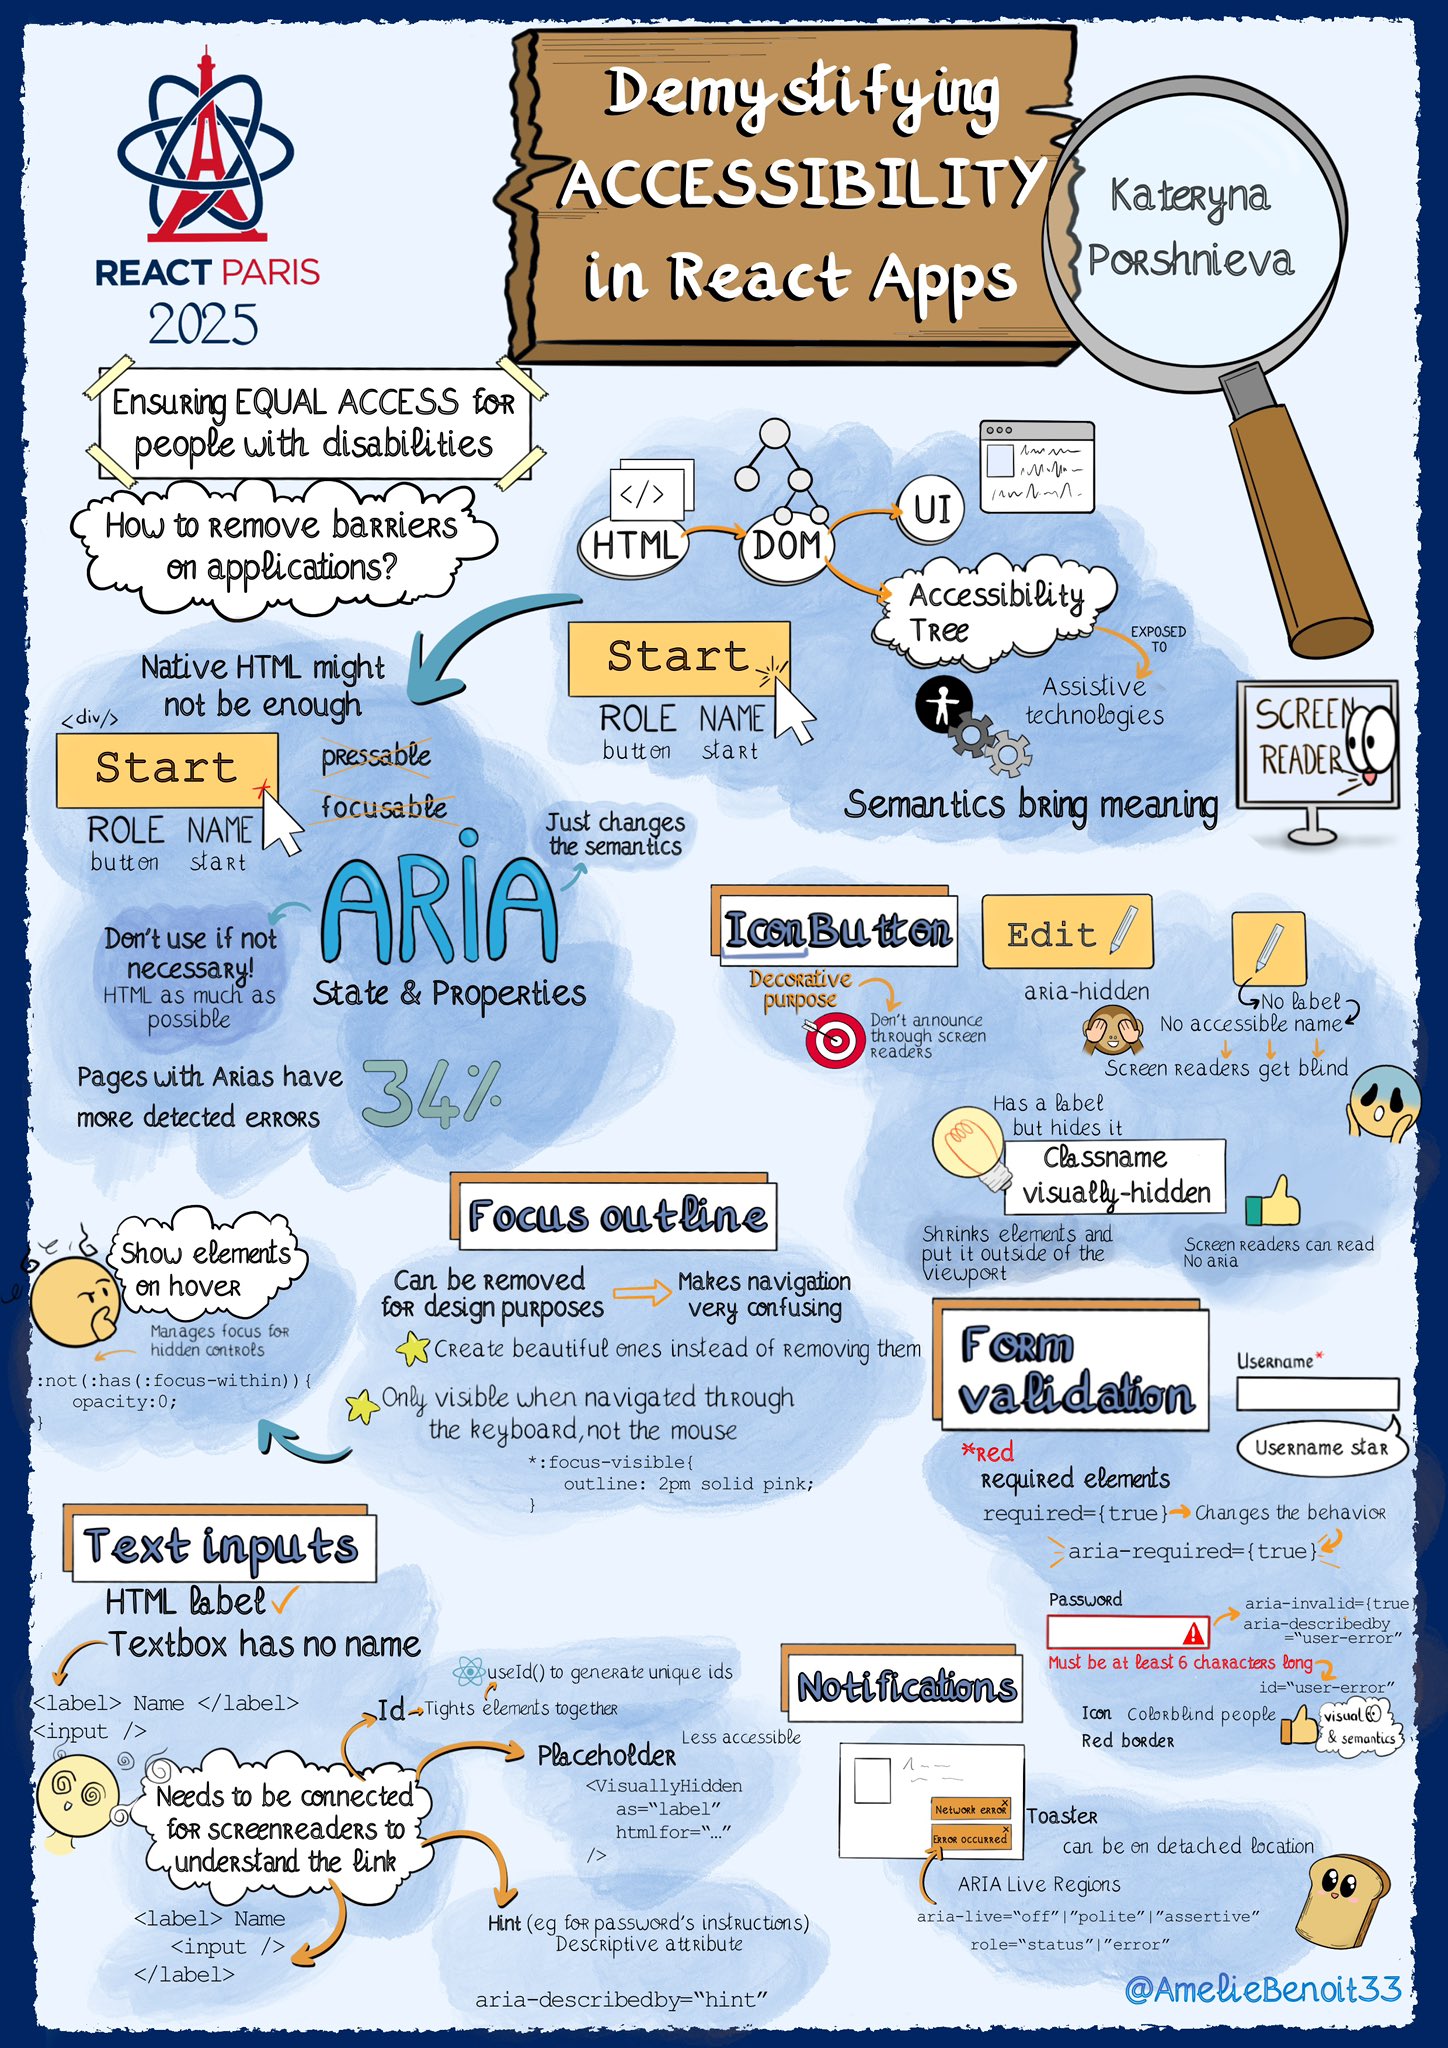 REACT PARIS
2025
Demystifying
ACCESSIBILITY
in React Apps
Kateryna
Porshnieva
Ensuring EQUAL ACCESS for
people with disabilities
How to remove barriers
on applications?
</>
HTML
DOM
UI
Accessibility
Tree
EXPOSED
TO
Assistive
technologies
Start
ROLE NAME
button start
SCREEN
READER
Semantics bring meaning
Native HTML might
not be enough
<div/>
Start
pressable
focusable
ROLE NAME
button start
ARIA
Just changes
the semantics
State & Properties
Don't use if not
necessary!
HTML as much as
possible
Pages with Arias have
more detected errors
34%
IconButton
Decorative
purpose
Don't announce
through screen
readers
Edit
aria-hidden
No label
No accessible name
Screen readers get blind
Has a label
but hides it
Classname
visually-hidden
Shrinks elements and
put it outside of the
viewport
Screen readers can read
No aria
Focus outline
Can be removed
for design purposes
Makes navigation
very confusing
Create beautiful ones instead of removing them
Only visible when navigated through
the keyboard, not the mouse
*:focus-visible{
outline: 2pm solid pink;
}
Show elements
on hover
Manages focus for
hidden controls
:not(:has(:focus-within)){
opacity:0;
}
Form
validation
Username*
Username star
*Red
required elements
required={true}
Changes the behavior
aria-required={true}
Password
aria-invalid={true}
aria-describedby
="user-error"
Must be at least 6 characters long
id="user-error"
Icon Colorblind people
Red border
visual
& semantics
Text inputs
HTML label
Textbox has no name
<label> Name </label>
<input />
Needs to be connected
for screenreaders to
understand the link
useId() to generate unique ids
Id
Tights elements together
Placeholder
Less accessible
<VisuallyHidden
as="label"
htmlfor="..."
/>
Hint (eg for password's instructions)
Descriptive attribute
aria-describedby="hint"
<label> Name
<input />
</label>
Notifications
Network error
x
Error occurred
x
Toaster
can be on detached location
ARIA Live Regions
aria-live="off"|"polite"|"assertive"
role="status"|"error"
@AmelieBenoit33